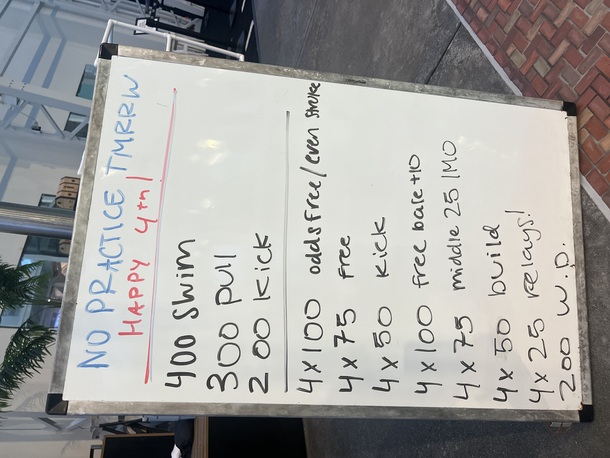 NO PRACTICE TMRRW
HAPPY 4th!
400 Swim
300 pull
200 Kick
4x100 odds free/even stroke
4x75 free
4x50 Kick
4x100 free base+10
4x75 middle 25 IMO
4x50 build
4x25 relays!
200 W.D.